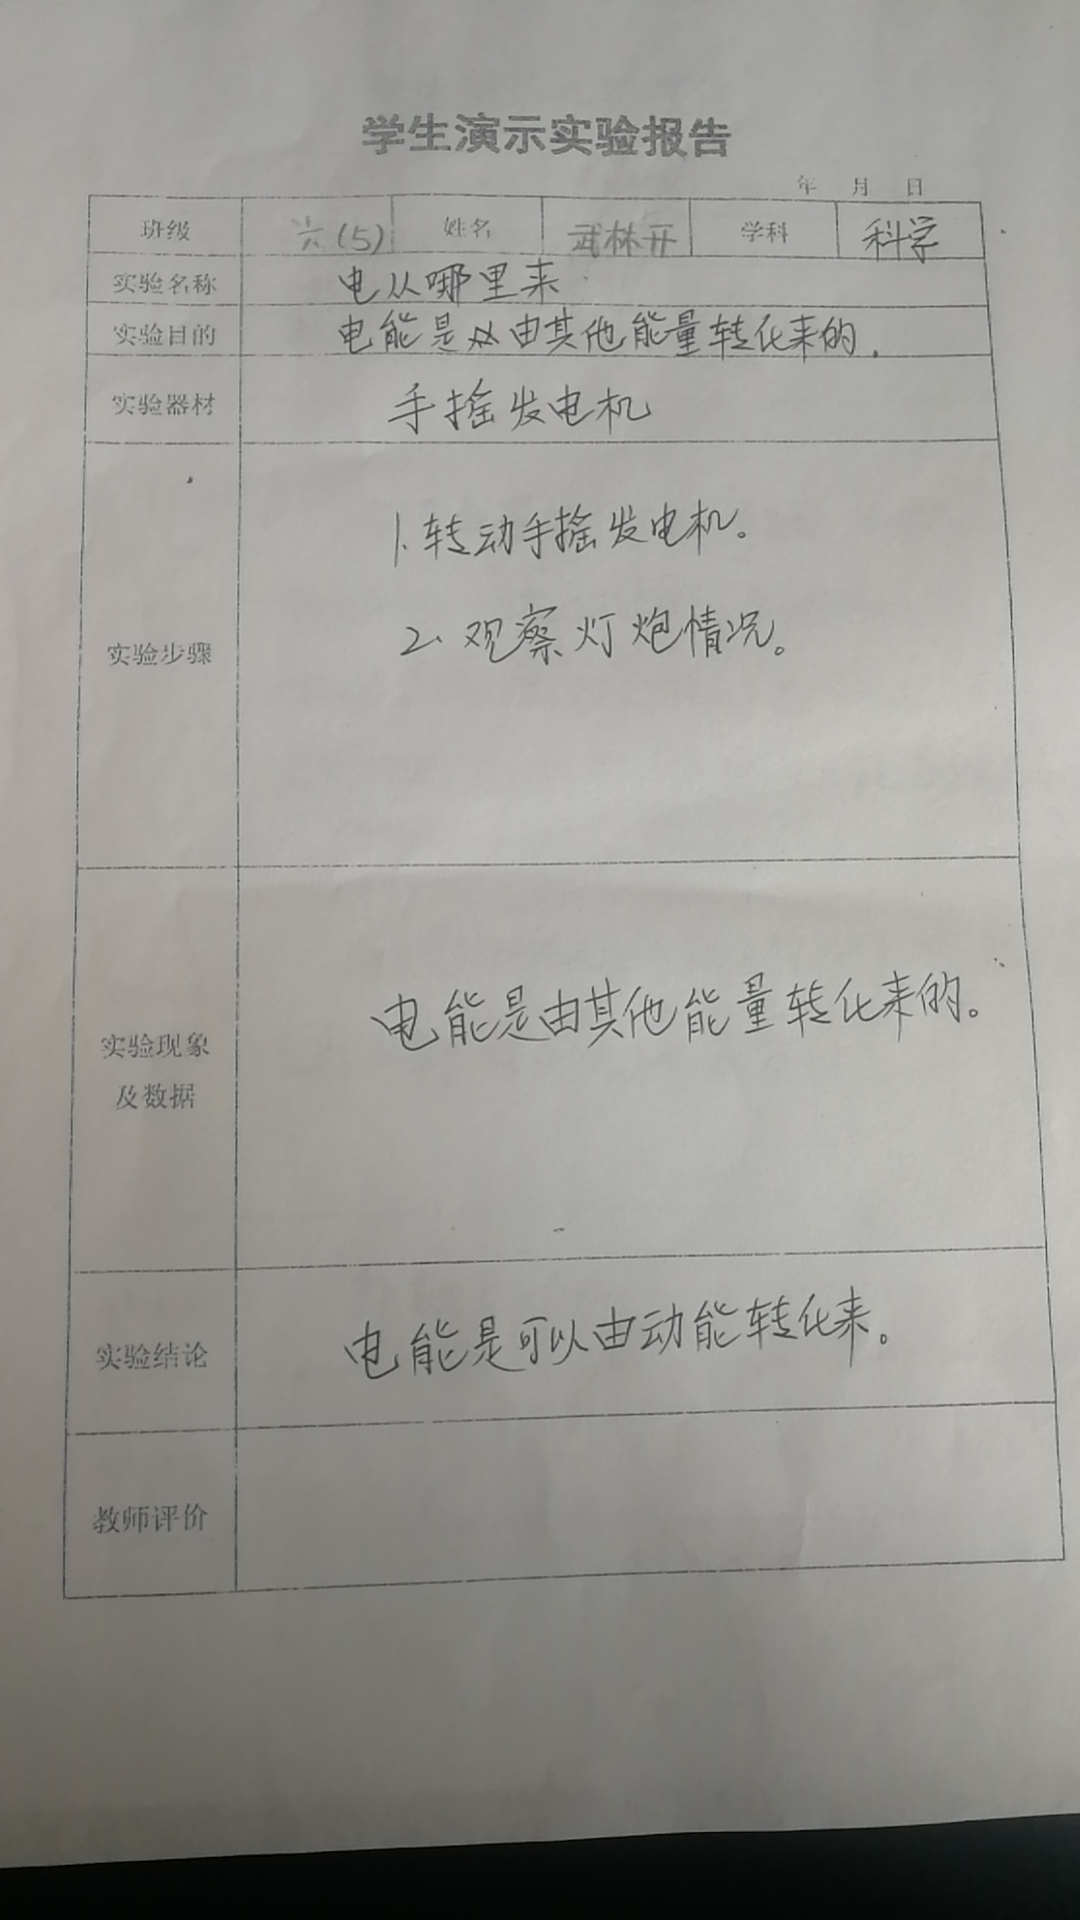 学生演示实验报告
年 月 日
班级 六(5) 姓名 武林开 学科 科学
实验名称 电从哪里来
实验目的 电能是由其他能量转化来的.
实验器材 手摇发电机
实验步骤
1.转动手摇发电机。
2.观察灯炮情况。
实验现象
及数据
电能是由其他能量转化来的。
实验结论 电能是可以由动能转化来。
教师评价